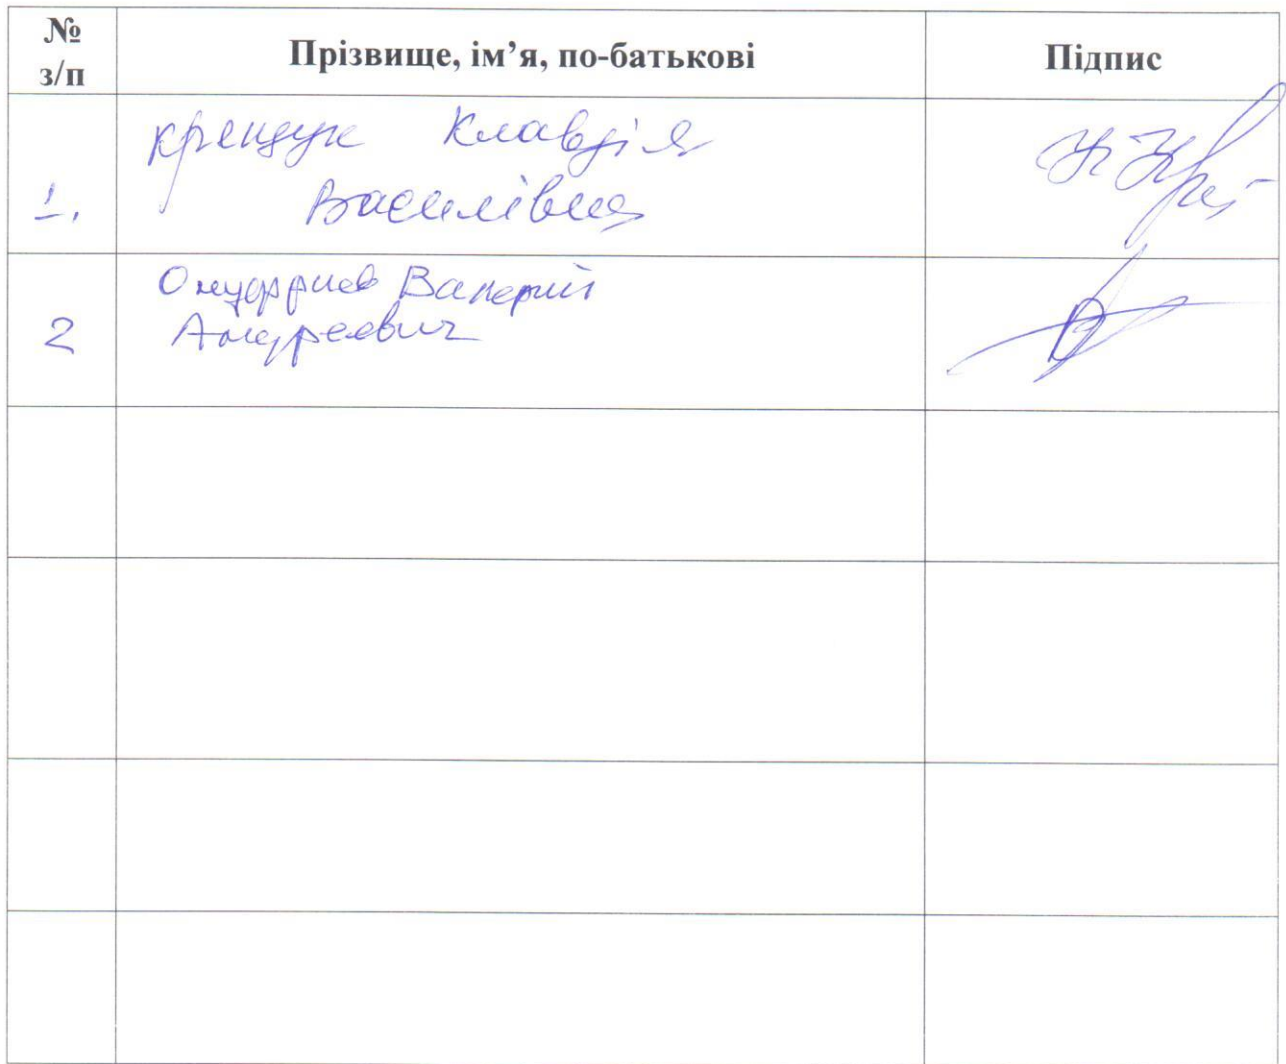 № з/п
Прізвище, ім’я, по-батькові
Підпис
Крещук Клавдія
1. Василівна
Онуфриев Валерий
2 Андреевич